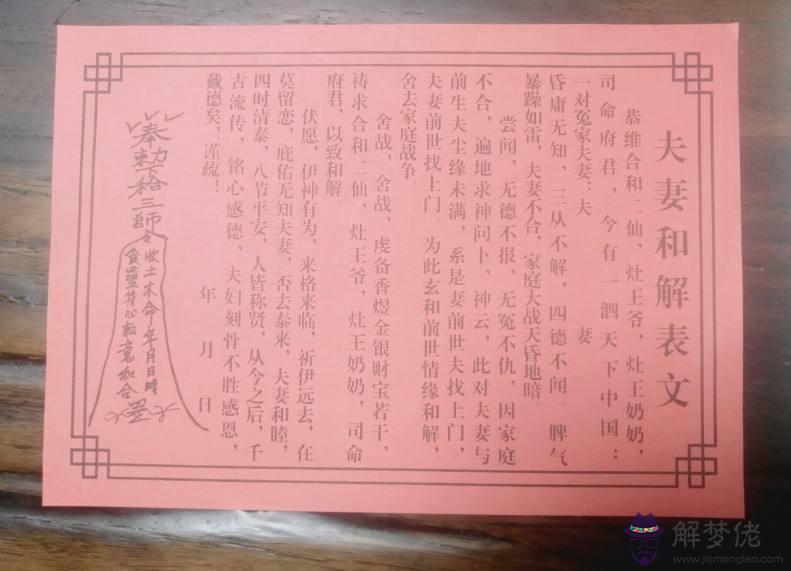 夫妻和解表文
恭维合和二仙，灶王爷，灶王奶奶，
司命府君，今有一泗天下中国：
一对冤家夫妻：夫　妻
昏庸无知，三从不解，四德不闻　脾气
暴躁如雷，夫妻不合，家庭大战天昏地暗。
尝闻，无德不报，无冤不仇，因家庭
不合，遍地求神问卜，神云，此对夫妻与
前生夫尘缘未满，系是妻前世夫找上门，
夫妻前世找上门　为此玄和前世情缘和解，
舍去家庭战争
舍战，舍战，虔备香煜金银财宝若干，
祷求合和二仙，灶王爷，灶王奶奶，司命
府君，以致和解
伏愿，伊神有为，来格来临，祈伊远去，在
莫留恋，庇佑无知夫妻，否去泰来，夫妻和睦，
四时清泰，八节平安，人皆称贤，从今之后，千
古流传，铭心感德，夫妇刻骨不胜感恩，
戴德矣！谨疏！
年　月　日
奉勅
三師
收土木命年月日時
和合
解梦佬
www.jiemenglao.com